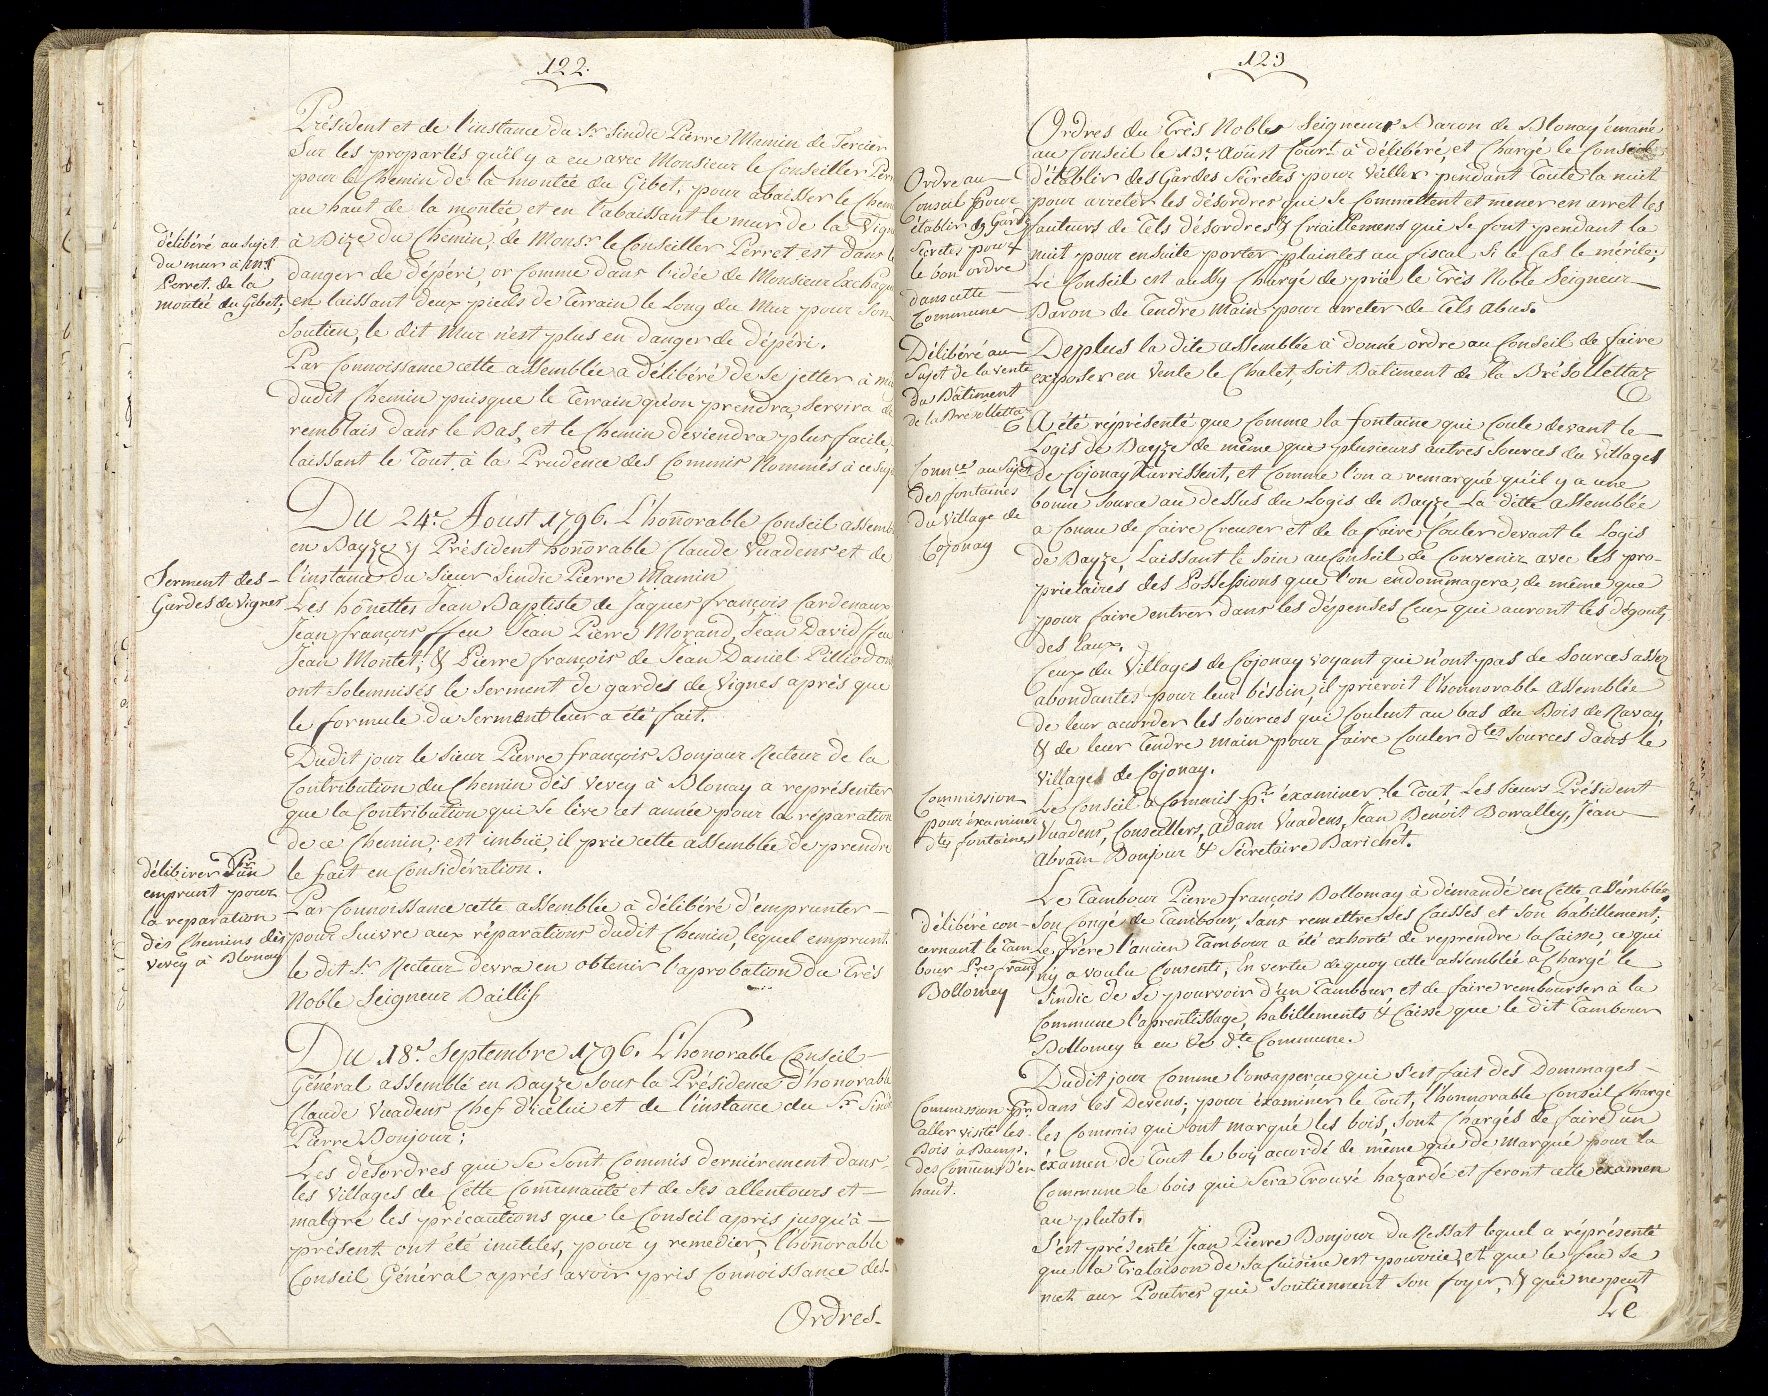 122.
Président et de l'instance du Sr. Sindic Pierre Mamin de Tercier
Sur les propartés qu'il y a eu avec Monsieur le Conseiller Perr
pour le Chemin de la montée du Gibet, pour abaisser le Chem
au haut de la montée et en l'abaissant le mur de la Vign
délibéré au Sujet
du mur à Mr.
Perret. de la
montée du Gibet;
à Bize du Chemin, de Monsr. le Conseiller Perret est dans l
danger de dépéri, or Comme dans l'idée de Monsieur Exchaqu
en laissant deux pieds de Terrain le Long du Mur pour Son
Soutien, le dit Mur n'est plus en danger de dépéri.
Par Connoissance cette assemblée a délibéré de se jetter à m
dudit Chemin puisque le Terrain qu'on prendra, Servira de
remblais dans le Bas, et le Chemin deviendra plus facile,
laissant le Tout, à la Prudence des Commis Nommés à ce Suj
Du 24e. Aoust 1796. L'honnorable Conseil assemb
en Bayze & Président honnorable Claude Vuadens et de
l'instance du Sieur Sindic Pierre Mamin
Serment des
Gardes de Vignes
Les hônettes Jean Baptiste de Jaques françois Cardenaux
Jean françois ffeu Jean Pierre Morand, Jean David ffeu
Jean Montet, & Pierre françois de Jean Daniel Pilliod on
ont Solemnisés le Serment de gardes de Vignes après que
le formule du Serment leur a été fait.
Dudit jour le Sieur Pierre françois Bonjour Recteur de la
Contribution du Chemin dès Vevey à Blonay a représenter
que la Contribution qui Se lève cet année pour la réparation
de ce Chemin, est imbue, il prie cette assemblée de prendre
le fait en Considération.
délibérer Pr. un
emprunt pour
la reparation
des Chemins dès
Vevey à Blonay
Par Connoissance cette assemblée à délibéré d'emprunter
pour Suivre aux réparations dudit Chemin, lequel emprunt.
le dit Sr. Recteur devra en obtenir l'aprobation du Très
Noble Seigneur Baillif
Du 18e. Septembre 1796. L'honorable Conseil
Général assemblé en Bayze Sous la Présidence d'honorable
Claude Vuadens Chef d'icelui et de l'instance du Sr. Sindi
Pierre Bonjour;
Les désordres qui Se Sont Commis derniérement dans
les Villages de Cette Communauté et de Ses allentours et
malgré les précautions que le Conseil a pris jusqu'à
présent ont été inutiles, pour y remedier, l'honnorable
Conseil Général après avoir pris Connoissance des
Ordres.
123
Ordres du Très Noble Seigneur Baron de Blonay émané
au Conseil le 13e. Aoust Court. à délibéré, et Chargé le Conseil
Ordre au
Conseil pour
établir des Gardes
Secretes pour
le bon ordre
dans cette
Commune
d'établir des Gardes Secretes pour Veiller pendant Toute la nuit
pour arreter les désordres qui Se Commettent et mener en arret les
fauteurs de Tels désordres & Criaillemens qui Se font pendant la
nuit pour ensuite porter plaintes au fiscal Si le Cas le mérite;
Le Conseil est aussy Chargé de prié le Très Noble Seigneur
Baron de Tendre Main pour arreter de Tels Abus.
Délibéré au
Sujet de la vente
du Bâtiment
de la Bresollettaz
Deplus la dite assemblée à donné ordre au Conseil de faire
exposer en Vente le Chalet, Soit Batiment de la Brésollettaz
A été réprésenté que Comme la fontaine qui Coule devant le
Logis de Bayze de même que plusieurs autres Sources du Villages
Connce. au Sujet
des fontaines
du Village de
Cojonay
de Cojonay Tarrissent, et Comme l'on a remarqué qu'il y a une
bonne Source au dessus du Logis de Bayze La ditte assemblée
a Connu de faire Creuser et de la faire Couler devant le Logis
de Bayze, Laissant le Soin au Conseil de Convenir avec les pro-
prietaires des Possessions que l'on endommagera, de même que
pour faire entrer dans les dépenses Ceux qui auront les dégouts
des Eaux.
Ceux du Villages de Cojonay voyant qui n'ont pas de Sources assez
abondantes pour leur bésoin, il prieroit l'honnorable Assemblée
de leur acorder les Sources qui Coulent au bas du Bois de Ravay,
& de leur Tendre main pour faire Couler dtes. Sources dans le
Villages de Cojonay.
Commission
pour éxaminer
dtes fontaines
Le Conseil a Commis Pr. éxaminer le Tout Les Sieurs Président
Vuadens, Conseillers, Adam Vuadens, Jean Bénoit Bovalley, Jean
Abram Bonjour & Sécretaire Barichet.
Le Tambour Pierre françois Bollomay à démandé en Cette assemblée
délibéré con-
cernant le Tam
bour Pre. franç
Bollomey
Son Congé de Tambour, Sans remettre Ses Caisses et Son habillement;
Le frère l'ancien Tambour a été exhorté de reprendre la Caisse, ce qui
n'y a voulu Consenti, En vertu de quoy cette assemblée a Chargé le
Sindic de Se pourvoir d'un Tambour, et de faire rembourser à la
Commune l'aprentissage, habillements & Caisse que le dit Tambour
Bollomey a eu de dte. Commune.
Dudit jour Comme l'on aperçu qui S'est fait des Dommages
Commission Pr.
aller visité les
Bois à Bamp.
des Communs d'en
haut.
dans les Devens; pour éxaminer le Tout, l'honnorable Conseil Chargé
les Commis qui ont marqué les bois, Sont Chargés de faire un
éxamen de Tout le bois accordé de même que de marqué pour la
Commune le bois qui Sera Trouvé hazardé et feront cette éxamen
au plutot.
S'est présenté Jean Pierre Bonjour du Ressat lequel a réprésenté
que la Tralaison de Sa Cuisine est pourrie, et que le feu Se
met aux Poutres qui Soutiennent Son foyer, & qui ne peut
Le